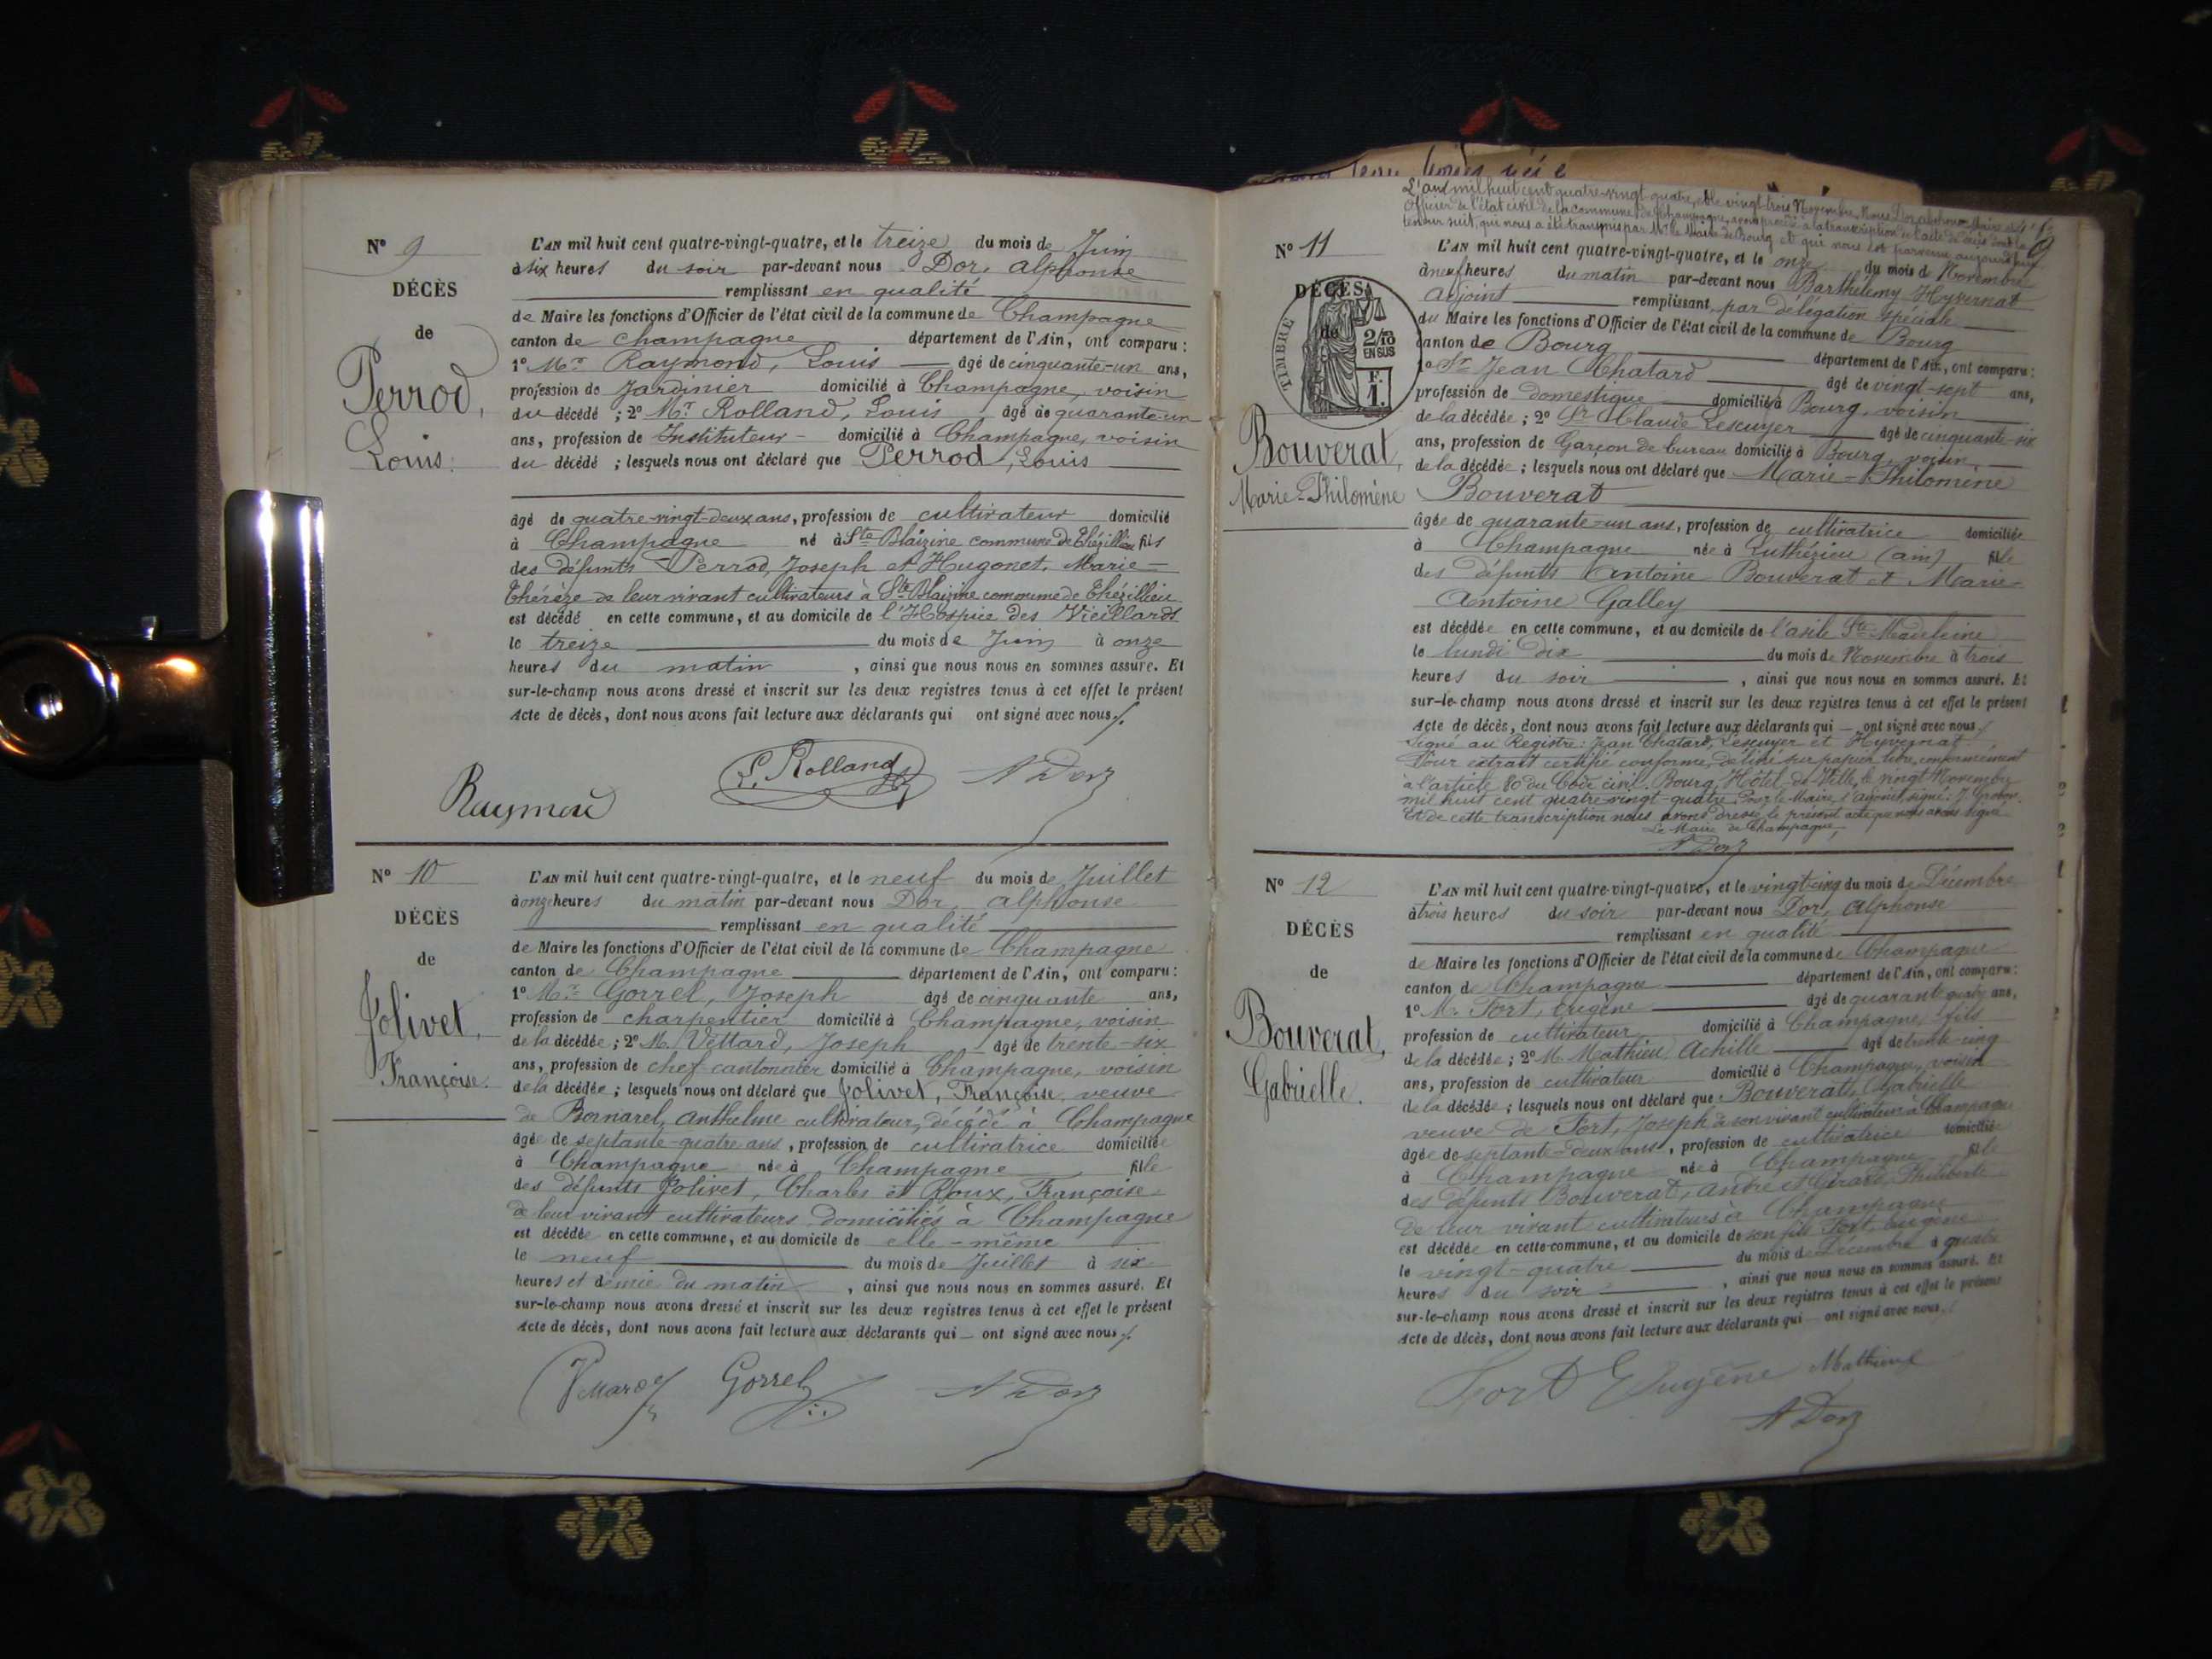 Nº 9
DÉCÈS
de
Perrod,
Louis.
L'AN mil huit cent quatre-vingt-quatre, et le treize du mois de Juin
à six heures du soir par-devant nous Dor, Alphonse
remplissant en qualité
de Maire les fonctions d'Officier de l'état civil de la commune de Champagne
canton de Champagne département de l'Ain, ont comparu :
1º Mr Raymond, Louis âgé de cinquante-un ans,
profession de Jardinier domicilié à Champagne, voisin
du décédé ; 2º Mr Rolland, Louis, âgé de quarante-un
ans, profession de Instituteur - domicilié à Champagne, voisin
du décédé ; lesquels nous ont déclaré que Perrod, Louis
âgé de quatre-vingt-deux ans, profession de cultivateur domicilié
à Champagne né à Ste Blaizine commune de Thézillieu fils
des défunts Perrod, Joseph et Hugonet, Marie-
Thérèze de leur vivant cultivateurs à Ste Blaizine commune de Thézillieu
est décédé en cette commune, et au domicile de l'Hospice des Vieillards
le treize du mois de Juin à onze
heures du matin, ainsi que nous nous en sommes assuré. Et
sur-le-champ nous avons dressé et inscrit sur les deux registres tenus à cet effet le présent
Acte de décès, dont nous avons fait lecture aux déclarants qui ont signé avec nous./.
L. Rolland A Dor
Raymond
Nº 10
DÉCÈS
de
Jolivet,
Françoise.
L'AN mil huit cent quatre-vingt-quatre, et le neuf du mois de Juillet
à onze heures du matin par-devant nous Dor, Alphonse
remplissant en qualité
de Maire les fonctions d'Officier de l'état civil de la commune de Champagne
canton de Champagne département de l'Ain, ont comparu :
1º Mr Gorrel, Joseph âgé de cinquante ans,
profession de charpentier domicilié à Champagne, voisin
de la décédée ; 2º M. Vettard, Joseph âgé de trente-six
ans, profession de chef-cantonnier domicilié à Champagne, voisin
de la décédée ; lesquels nous ont déclaré que Jolivet, Françoise, veuve
de Bornarel, Anthelme cultivateur, décédé à Champagne
âgée de septante-quatre ans, profession de cultivatrice domiciliée
à Champagne née à Champagne fille
des défunts Jolivet, Charles et Roux, Françoise
de leur vivant cultivateurs domiciliés à Champagne
est décédée en cette commune, et au domicile de elle-même
le neuf du mois de Juillet à six
heures et demie du matin, ainsi que nous nous en sommes assuré. Et
sur-le-champ nous avons dressé et inscrit sur les deux registres tenus à cet effet le présent
Acte de décès, dont nous avons fait lecture aux déclarants qui — ont signé avec nous./.
Gorrel A Dor
L'an mil huit cent quatre-vingt-quatre, et le vingt-trois Novembre, Nous Dor Alphonse Maire et
Officier de l'état civil de la commune de Champagne, avons procédé à la transcription de l'acte de décès dont la
teneur suit, qui nous a été transmis par Mr le Maire de Bourg et qui nous est parvenu aujourd'hui
9
Nº 11
DÉCÈS
de
TIMBRE
2/10
EN SUS
F.
1.
Bouverat,
Marie-Philomène
L'AN mil huit cent quatre-vingt-quatre, et le onze du mois de Novembre
à neuf heures du matin par-devant nous Barthélemy Hyvernat
adjoint remplissant par délégation spéciale
du Maire les fonctions d'Officier de l'état civil de la commune de Bourg
canton de Bourg département de l'Ain, ont comparu :
1º Sr Jean Chatard âgé de vingt-sept ans,
profession de domestique domicilié à Bourg, voisin
de la décédée ; 2º Sr Claude Lescuyer âgé de cinquante-six
ans, profession de Garçon de bureau domicilié à Bourg, voisin,
de la décédée ; lesquels nous ont déclaré que Marie-Philomène
Bouverat
âgée de quarante-un ans, profession de cultivatrice domiciliée
à Champagne née à Luthézieu (ain) fille
des défunts Antoine Bouverat et Marie-
Antoine Galley
est décédée en cette commune, et au domicile de l'asile Ste Madeleine
le lundi dix du mois de Novembre à trois
heures du soir, ainsi que nous nous en sommes assuré. Et
sur-le-champ nous avons dressé et inscrit sur les deux registres tenus à cet effet le présent
Acte de décès, dont nous avons fait lecture aux déclarants qui — ont signé avec nous./
Signé au Registre : Jean Chatard, Lescuyer et Hyvernat
Pour extrait certifié conforme, délivré sur papier libre, conformément
à l'article 80 du Code civil. Bourg, Hôtel de Ville, le vingt Novembre
mil huit cent quatre-vingt-quatre. Pour le Maire, l'adjoint, signé :
Et de cette transcription nous avons dressé le présent acte que nous avons signé
Le Maire de Champagne,
A Dor
Nº 12
DÉCÈS
de
Bouverat,
Gabrielle.
L'AN mil huit cent quatre-vingt-quatre, et le vingt-cinq du mois de Décembre
à trois heures du soir par-devant nous Dor, Alphonse
remplissant en qualité
de Maire les fonctions d'Officier de l'état civil de la commune de Champagne
canton de Champagne département de l'Ain, ont comparu :
1º M. Fort, Eugène âgé de quarante-quatre ans,
profession de cultivateur domicilié à Champagne, fils
de la décédée ; 2º M. Mathieu Achille âgé de trente-cinq
ans, profession de cultivateur domicilié à Champagne, voisin
de la décédée ; lesquels nous ont déclaré que Bouverat, Gabrielle
veuve de Fort, Joseph de son vivant cultivateur à Champagne
âgée de septante-deux ans, profession de cultivatrice domiciliée
à Champagne née à Champagne fille
des défunts Bouverat, André et Girard, Philiberte
de leur vivant cultivateurs à Champagne
est décédée en cette commune, et au domicile de son fils Fort Eugène
le vingt-quatre du mois de Décembre à quatre
heures du soir, ainsi que nous nous en sommes assuré. Et
sur-le-champ nous avons dressé et inscrit sur les deux registres tenus à cet effet le présent
Acte de décès, dont nous avons fait lecture aux déclarants qui — ont signé avec nous./
Fort Eugène Mathieu
A Dor